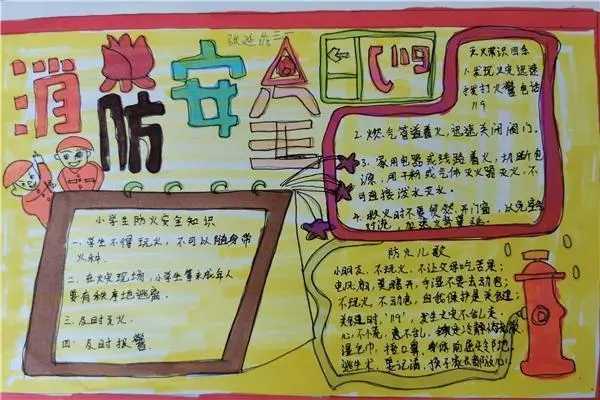 消防安全
119
灭火常识四条
1.发现火灾迅速
拨打火警电话
119
2.燃气管道着火,迅速关闭阀门。
3.家用电器或线路着火,切断电
源,用干粉或气体灭火器灭火,不
可直接泼水灭火。
4.救火时不要贸然开门窗,以免空气
对流,加速火势蔓延
小学生防火安全知识
一.学生不得玩火,不可以随身带
火种。
二.在火灾现场,小学生等未成年人
要有秩序地逃离。
三.及时灭火。
四.及时报警
防火儿歌
小朋友,不玩火,不让父母吃苦果;
电风扇,莫随开,手湿不要去动它;
不玩火,不动电,自我保护是关键;
关键时,"119",发生火灾不乱走。
心不慌,意不乱,
湿毛巾,捂口鼻,
逃生术,要记清,